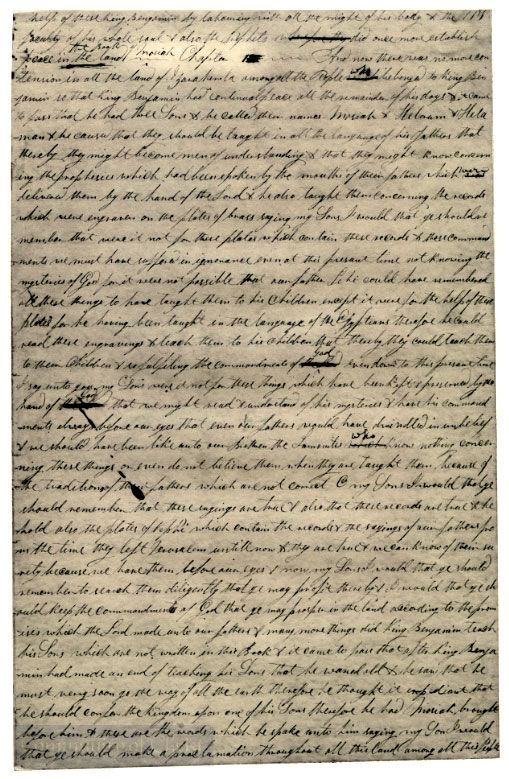 help of these king Benjamin by labouring with all the might of his body & the
faculty of his whole soul & also the prophets did once more establish
peace in the land the Book of Mosiah Chapter And now there was no more con
tension in all the land of Zarahemla among all the People who belonged to king Ben
jamin so that king Benjamin had continual peace all the remainder of his days & it came
to pass that he had three Sons & he called their names Mosiah & Helorum & Hela
man & he caused that they should be taught in all the language of his fathers that
thereby they might become men of understanding & that they might know concern
ing the prophecies which had been spoken by the mouths of their fathers which was
delivered them by the hand of the Lord & he also taught them concerning the records
which were engraven on the plates of brass saying my Sons I would that ye should re
member that were it not for these plates which contain these records & these command
ments we must have suffered in ignorance even at this present time not knowing the
mysteries of God for it were not possible that our father Lehi could have remembered
all these things to have taught them to his Children except it were for the help of these
plates for he having been taught in the language of the Egyptians therefore he could
read these engravings & teach them to his children that thereby they could teach them
to their Children & so fulfiling the commandments of God even down to this present time
I say unto you my Sons were it not for these things which have been kept & preserved by the
hand of God that we might read & understand of his mysteries & have his command
ments always before our eyes that even our fathers would have dwindled in unbelief
& we should have been like unto our Brethren the Lamanites who know nothing concer
ning these things or even do not believe them when they are taught them because of
the traditions of their fathers which are not correct O my Sons I would that ye
should remember that these sayings are true & also that these records are true & be
hold also the plates of Nephi which contain the records & the sayings of our fathers fro
m the time they left Jerusalem untill now & they are true & we can know of their su
rety because we have them before our eyes & now my Sons I would that ye should
remember to search them diligently that ye may profit thereby & I would that ye sh
ould keep the commandments of God that ye may prosper in the land according to the prom
ises which the Lord made unto our fathers & many more things did king Benjamin teach
his Sons which are not written in this Book & it came to pass that after king Benja
min had made an end of teaching his Sons that he waxed old & he saw that he
must very soon go the way of all the earth therefore he thought it expediant that
he should confer the kingdom upon one of his Sons therefore he had Mosiah brought
before him & these are the words which he spake unto him saying my Son I would
that ye should make a proclamation throughout all this land among all this People